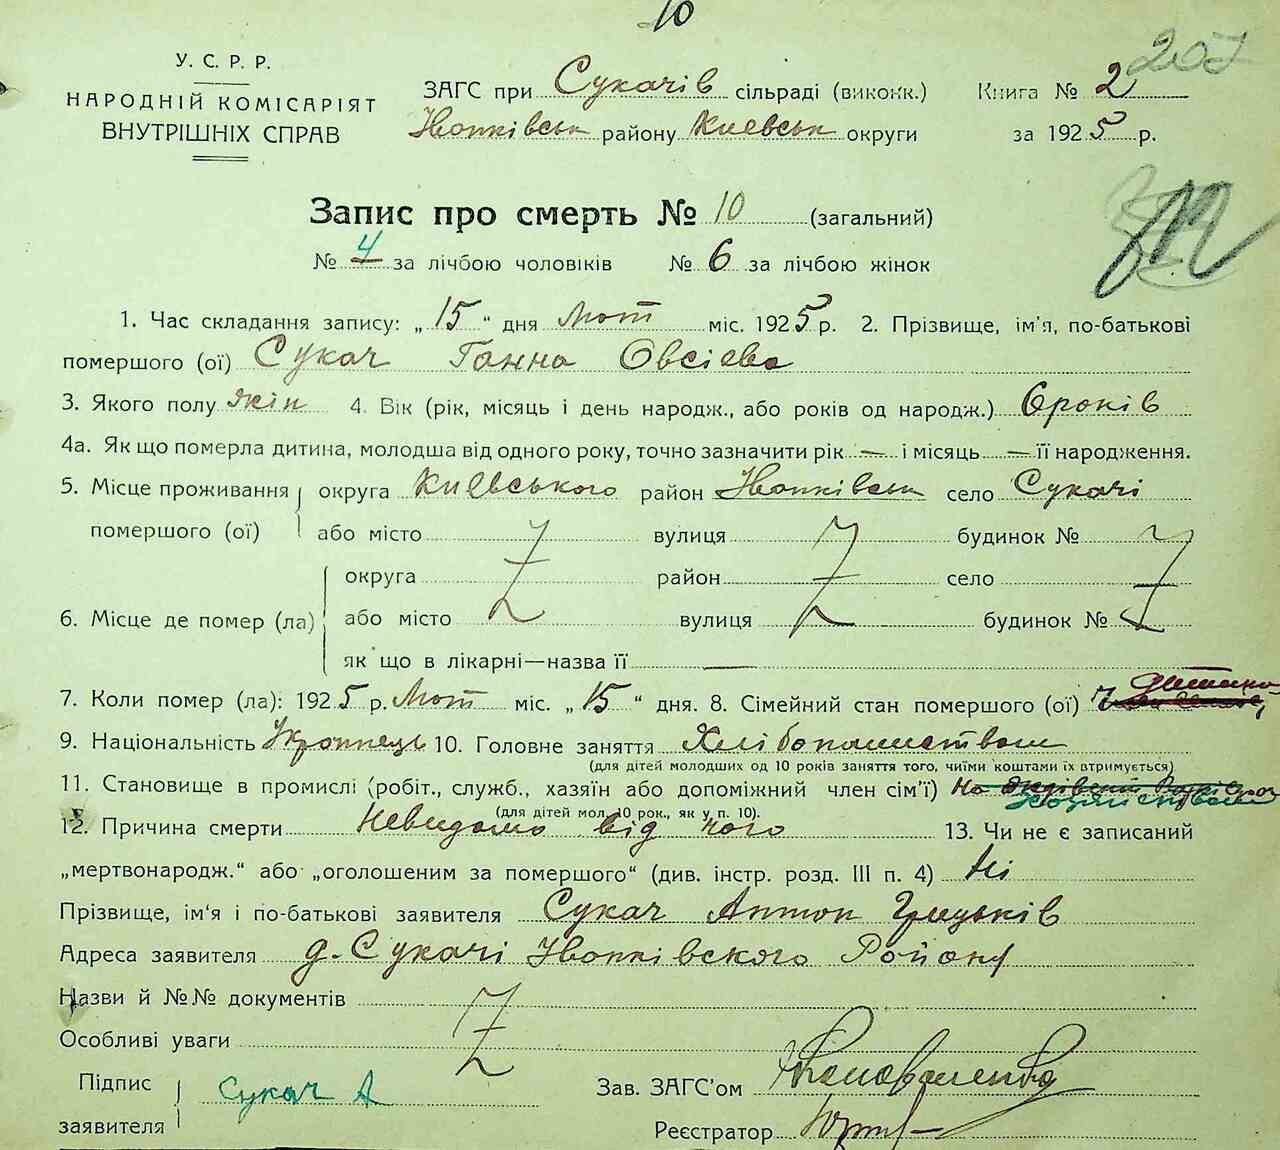 10
207
У. С. Р. Р.
НАРОДНІЙ КОМІСАРІЯТ
ВНУТРІШНІХ СПРАВ
ЗАГС при Сукачів сільраді (виконк.)
Книга № 2
Іванківськ району Київськ округи
за 1925 р.
Запис про смерть № 10 (загальний)
№ 4 за лічбою чоловіків № 6 за лічбою жінок
1. Час складання запису: „15“ дня Лют міс. 1925 р. 2. Прізвище, ім'я, по-батькові
помершого (ої) Сукач Ганна Овсієва
3. Якого полу жін 4. Вік (рік, місяць і день народж., або років од народж.) 6 років
4а. Як що померла дитина, молодша від одного року, точно зазначити рік — і місяць — її народження.
5. Місце проживання округа Київського район Іванківськ село Сукачі
помершого (ої) або місто вулиця будинок №
округа район село
6. Місце де помер (ла) або місто вулиця будинок №
як що в лікарні—назва її —
7. Коли помер (ла): 1925 р. Лют міс. „15“ дня. 8. Сімейний стан помершого (ої)
9. Національність Українець 10. Головне заняття Хлібопашеством
(для дітей молодших од 10 років заняття того, чиїми коштами їх втримується)
11. Становище в промислі (робіт., служб., хазяїн або допоміжний член сім'ї)
(для дітей мол. 10 рок., як у п. 10).
12. Причина смерти Невидомо від чого 13. Чи не є записаний
„мертвонародж.“ або „оголошеним за помершого“ (див. інстр. розд. III п. 4) Ні
Прізвище, ім'я і по-батькові заявителя Сукач Антон Грицьків
Адреса заявителя д. Сукачі Іванківского Району
Назви й №№ документів
Особливі уваги
Підпис
заявителя
Сукач А
Зав. ЗАГС'ом
Реєстратор